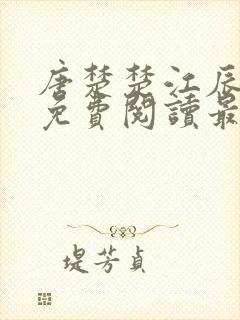 唐楚楚江辰
免費閱讀最
堤芳貞